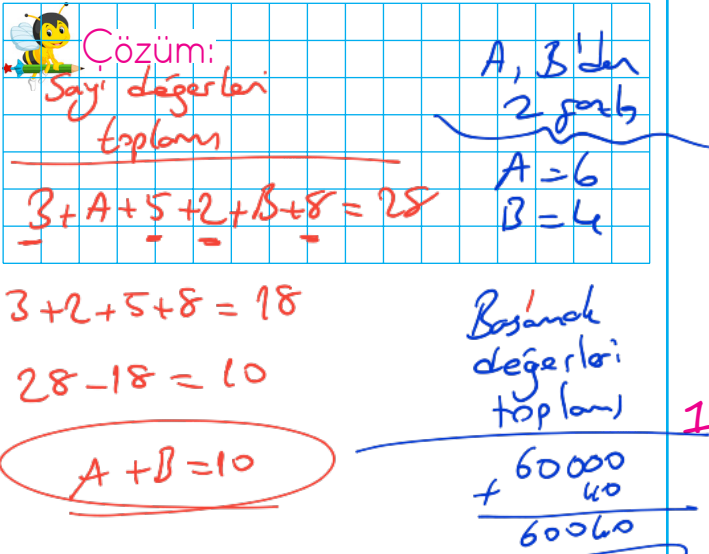 Çözüm:
Sayı değerleri
toplamı
3+A+5+2+B+8=28
3+2+5+8=18
28-18=10
A+B=10
A, B'den
2 fazla
A=6
B=4
Basamak
değerleri
toplamı
60000
+ 40
60040
1